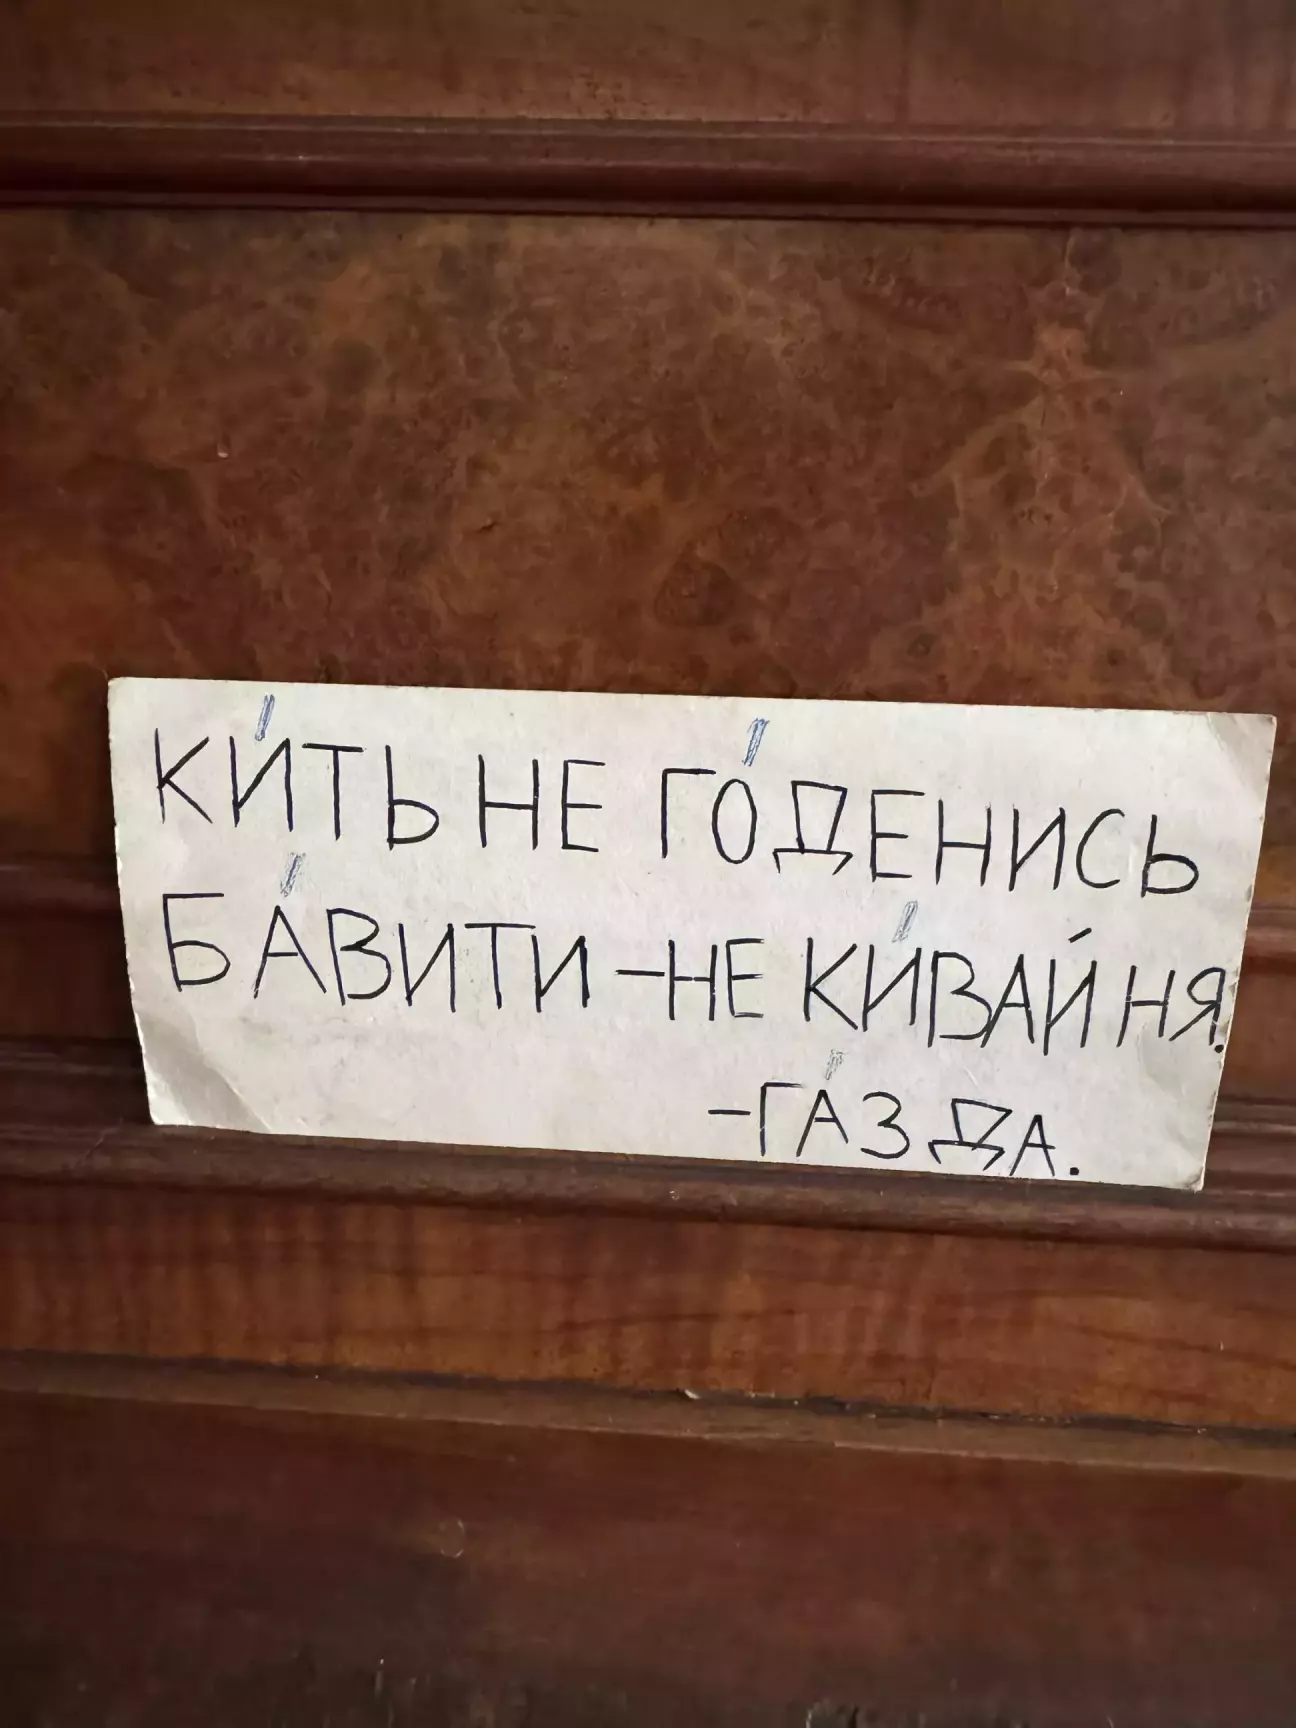 КИ́ТЬ НЕ ГО́ДЕНИСЬ
БА́ВИТИ – НЕ КИ́ВАЙ НЯ.
– ГА́ЗДА.